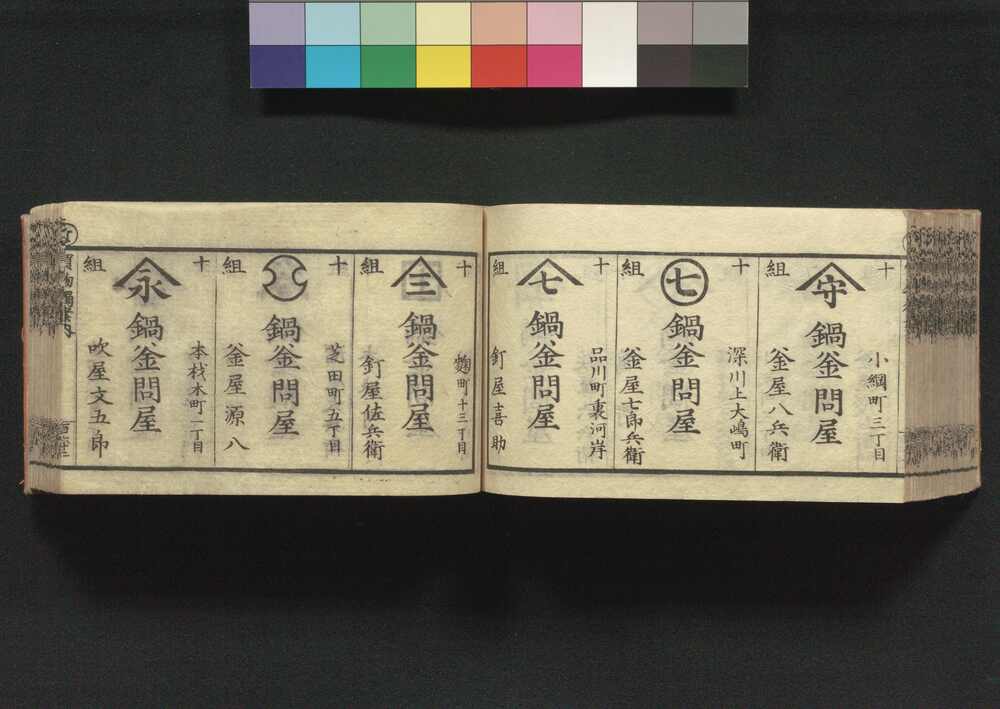 十
組
小網町三丁目
守
鍋釜問屋
釜屋八兵衛
十
組
深川上大嶋町
七
鍋釜問屋
釜屋七郎兵衛
十
組
品川町裏河岸
七
鍋釜問屋
釘屋喜助
十
組
麹町十三丁目
三
鍋釜問屋
釘屋佐兵衛
十
組
芝田町五丁目
鍋釜問屋
釜屋源八
十
組
本材木町一丁目
永
鍋釜問屋
吹屋文五郎